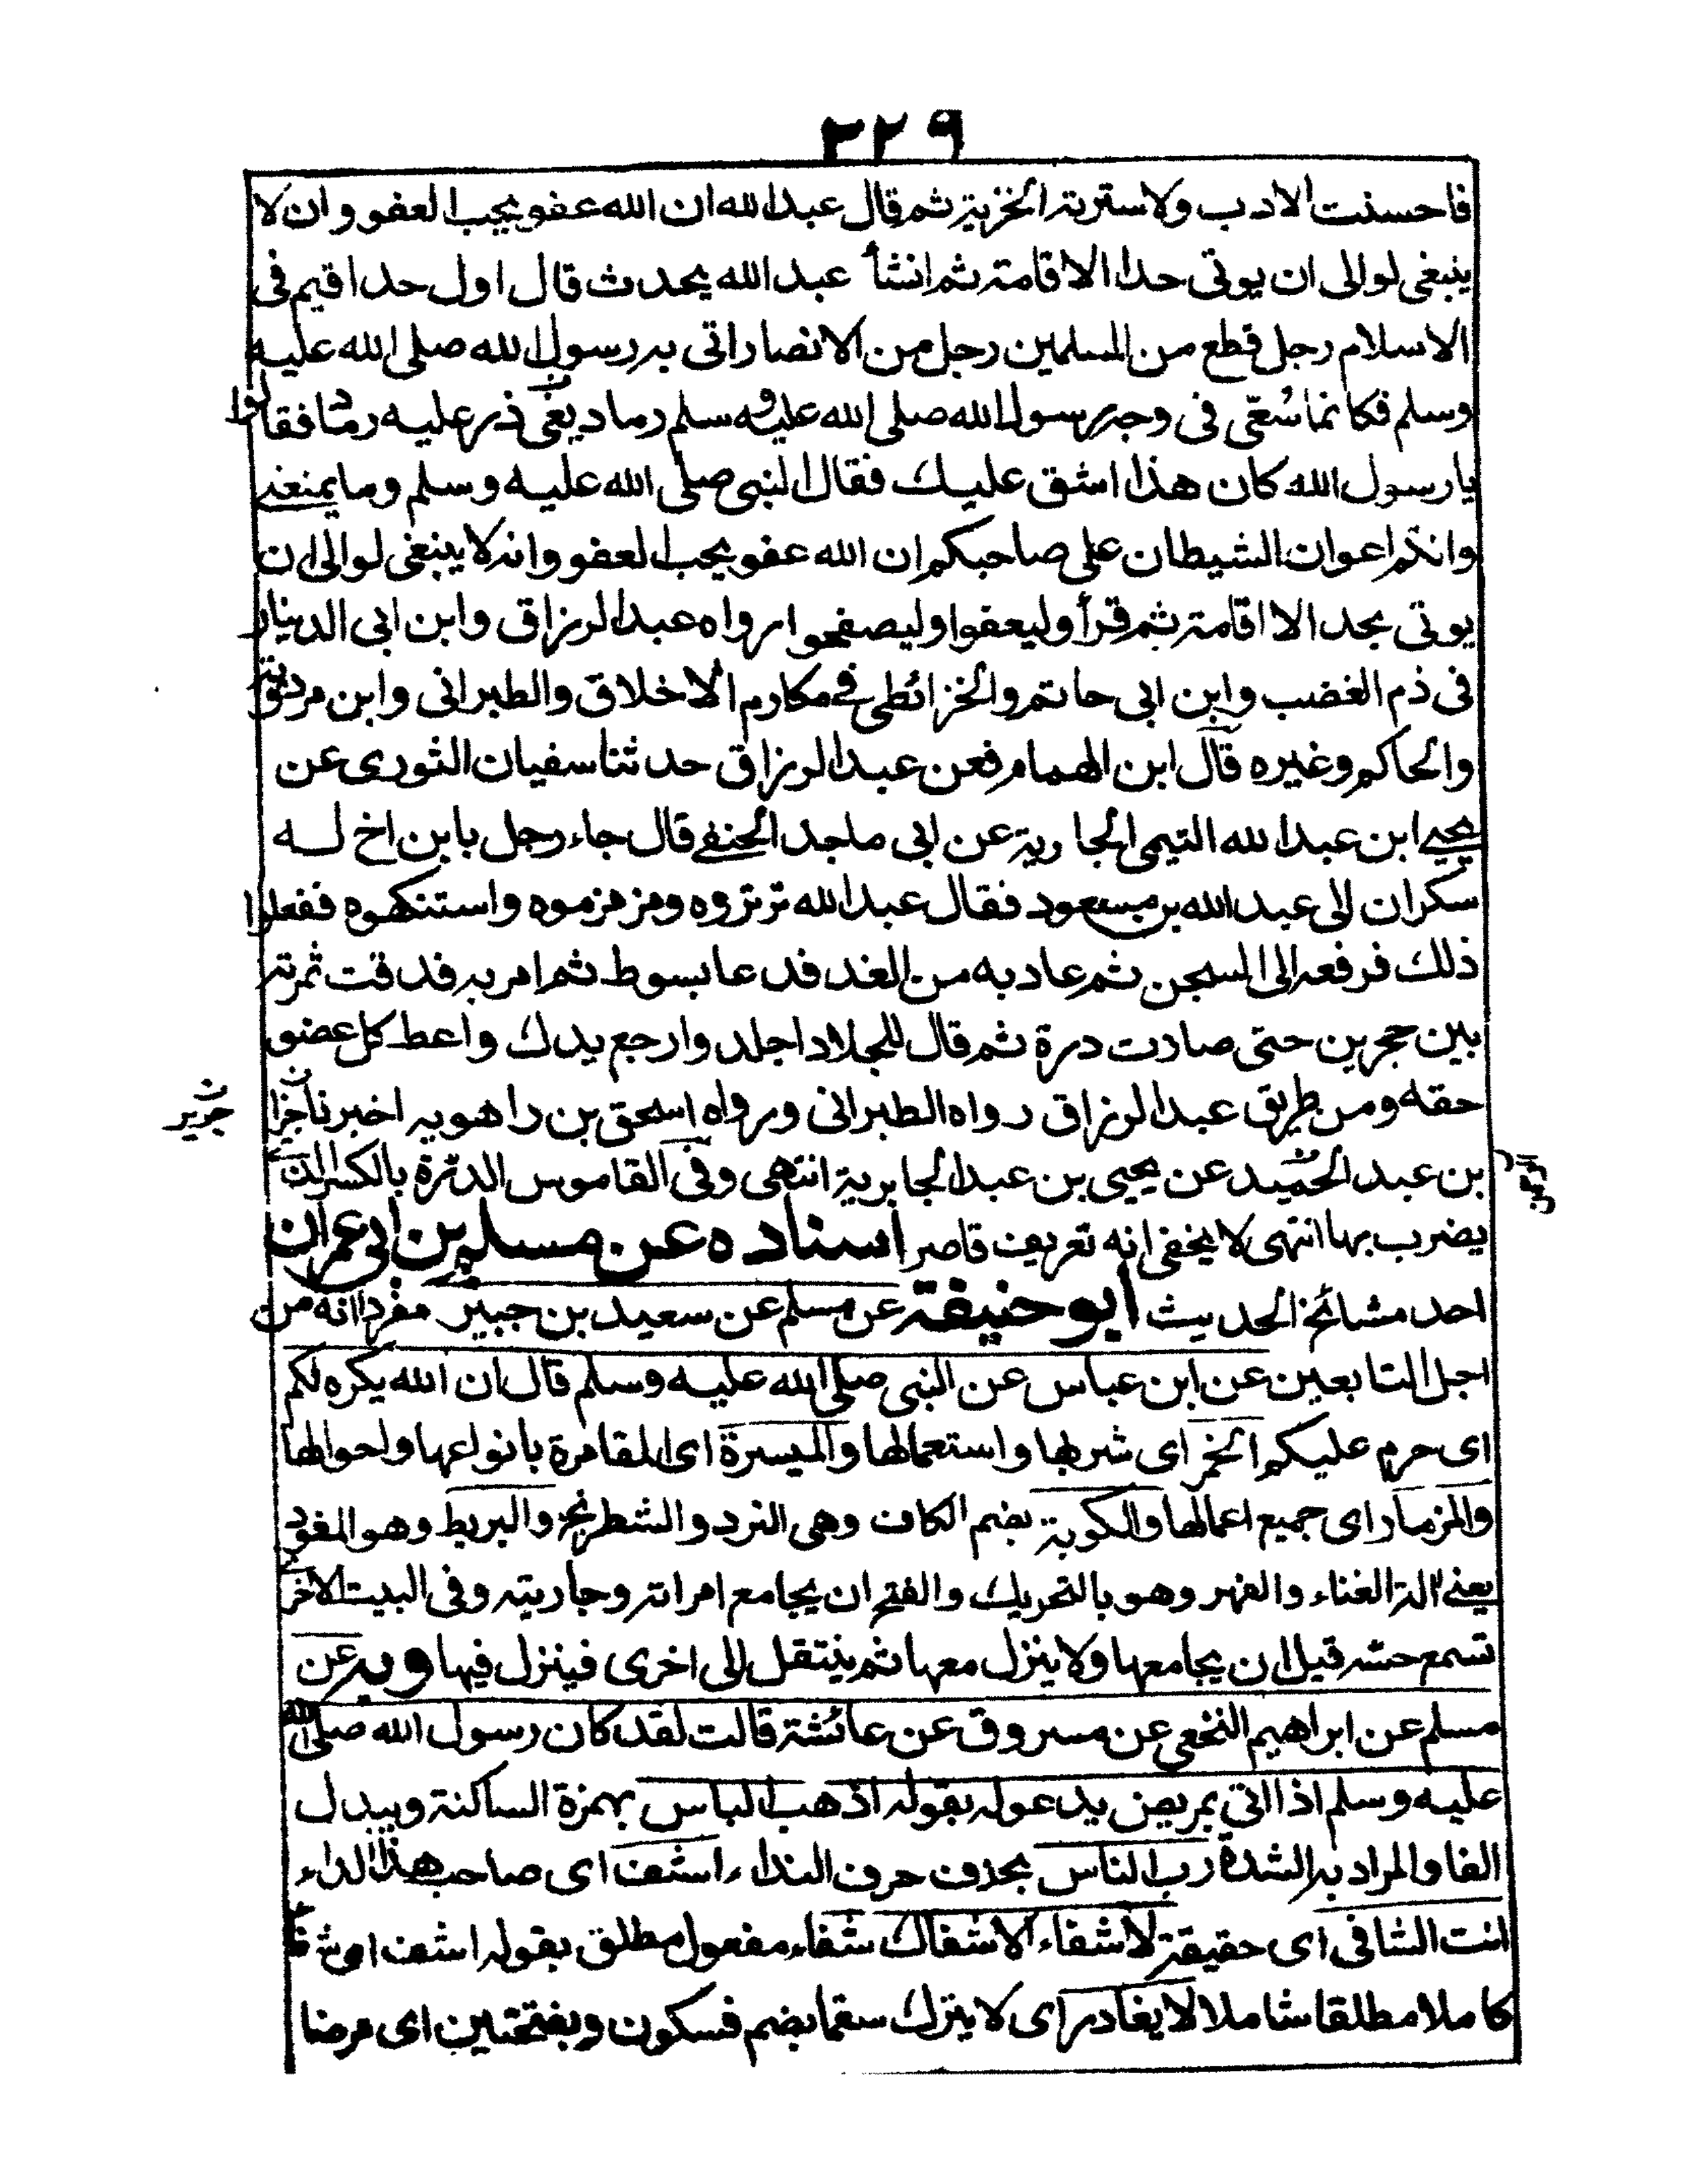 ٣٢٩
فاحسنت الادب ولاسترته الخزية ثم قال عبد الله ان الله عفو يحب العفو وان لا
ينبغى لوالى ان يوتى حدا الا اقامته ثم انشأ عبد الله يحدث قال اول حد اقيم فى
الاسلام رجل قطع من المسلمين رجل من الانصار اتى به رسول الله صلى الله عليه
وسلم فكانما سُفّى فى وجه رسول الله صلى الله عليه وسلم رماد يعنى ذر عليه رمادا فقالوا
يا رسول الله كان هذا اشق عليك فقال النبى صلى الله عليه وسلم وما يمنعنى
وانتم اعوان الشيطان على صاحبكم ان الله عفو يحب العفو وانه لا ينبغى لوالى ان
يوتى بحد الا اقامته ثم قرأ وليعفوا وليصفحوا رواه عبد الرزاق وابن ابى الدنيا
فى ذم الغضب وابن ابى حاتم والخرائطى فى مكارم الاخلاق والطبرانى وابن مردويه
والحاكم وغيره قال ابن الهمام فعن عبد الرزاق حدثنا سفيان الثورى عن
يحيى ابن عبد الله التيمى الجارية عن ابى ماجد الحنفى قال جاء رجل بابن اخ له
سكران الى عبد الله بن مسعود فقال عبد الله ترتروه ومزمزموه واستنكهوه ففعلوا
ذلك فرفعه الى السجن ثم عاد به من الغد فدعا بسوط ثم امر به فدقت ثمرته
بين حجرين حتى صارت درة ثم قال للجلاد اجلد وارجع يدك واعط كل عضو
حقه ومن طريق عبد الرزاق رواه الطبرانى ورواه اسحق بن راهويه اخبرنا
جرير
بن عبد الحميد عن يحيى بن عبد الجابرية انتهى وفى القاموس الدرة بالكسر التى
يضرب بها انتهى لا يخفى انه تعريف قاصر اسناده عن مسلم بن ابى عمران
احد مشائخ الحديث ابو حنيفة عن مسلم عن سعيد بن جبير مفردا انه من
اجل التابعين عن ابن عباس عن النبى صلى الله عليه وسلم قال ان الله يكره لكم
اى حرم عليكم الخمر اى شربها واستعمالها والميسرة اى المقامرة بانواعها واحوالها
والمزمار اى جميع اعمالها والكوبة بضم الكاف وهى النرد والشطرنج والبربط وهو العود
يعنى الة الغناء والفهر وهو بالتحريك والفتح ان يجامع امراته وجاريته وفى البيت الاخرى
تسمع حسه قيل ان يجامعها ولا ينزل معها ثم ينتقل الى اخرى فينزل فيها وبه عن
مسلم عن ابراهيم النخعى عن مسروق عن عائشة قالت لقد كان رسول الله صلى الله
عليه وسلم اذا اتى بمريض يدعو له بقوله اذهب الباس بهمزة الساكنة ويبدل
الفا والمراد به الشدة رب الناس بحذف حرف النداء اشف اى صاحب هذا الداء
انت الشافى اى حقيقة لا شفاء الا شفاك شفاء مفعول مطلق بقوله اشف اى شفاء
كاملا مطلقا شاملا لا يغادر اى لا يترك سقما بضم فسكون وبفتحتين اى مرضا